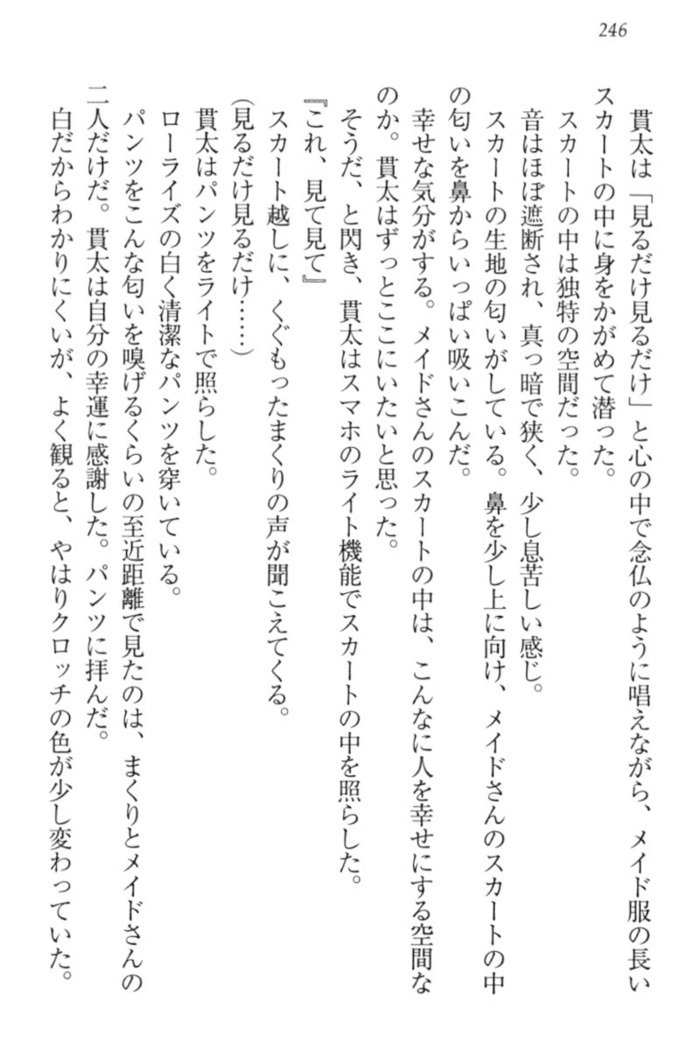 246
貫太は「見るだけ見るだけ」と心の中で念仏のように唱えながら、メイド服の長い
スカートの中に身をかがめて潜った。
スカートの中は独特の空間だった。
音はほぼ遮断され、真っ暗で狭く、少し息苦しい感じ。
スカートの生地の匂いがしている。鼻を少し上に向け、メイドさんのスカートの中
の匂いを鼻からいっぱい吸いこんだ。
幸せな気分がする。メイドさんのスカートの中は、こんなに人を幸せにする空間な
のか。貫太はずっとここにいたいと思った。
そうだ、と閃き、貫太はスマホのライト機能でスカートの中を照らした。
『これ、見て見て』
スカート越しに、くぐもったまくりの声が聞こえてくる。
(見るだけ見るだけ……)
貫太はパンツをライトで照らした。
ローライズの白く清潔なパンツを穿いている。
パンツをこんな匂いを嗅げるくらいの至近距離で見たのは、まくりとメイドさんの
二人だけだ。貫太は自分の幸運に感謝した。パンツに拝んだ。
白だからわかりにくいが、よく観ると、やはりクロッチの色が少し変わっていた。